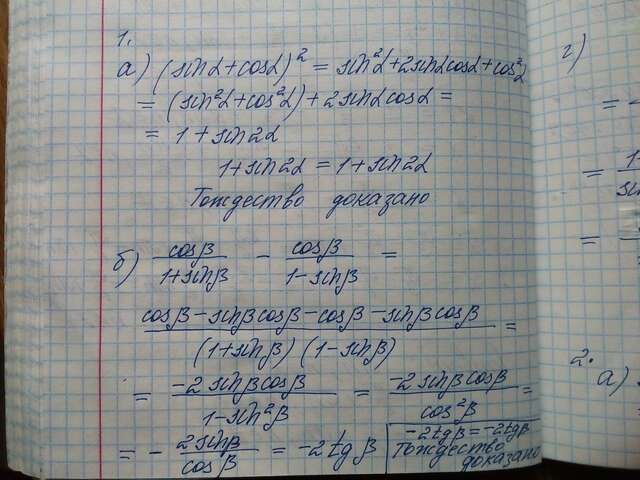 1.
а) (sinα+cosα)² = sin²α+2sinαcosα+cos²α
= (sin²α+cos²α)+2sinαcosα=
= 1+sin2α
1+sin2α = 1+sin2α
Тождество доказано
б) cosβ/(1+sinβ) - cosβ/(1-sinβ) =
(cosβ-sinβcosβ-cosβ-sinβcosβ)/((1+sinβ)(1-sinβ)) =
= (-2sinβcosβ)/(1-sin²β) = (-2sinβcosβ)/(cos²β) =
= - 2sinβ/cosβ = -2tgβ
-2tgβ=-2tgβ
Тождество
доказано
г)
=
=
=
2.
а)